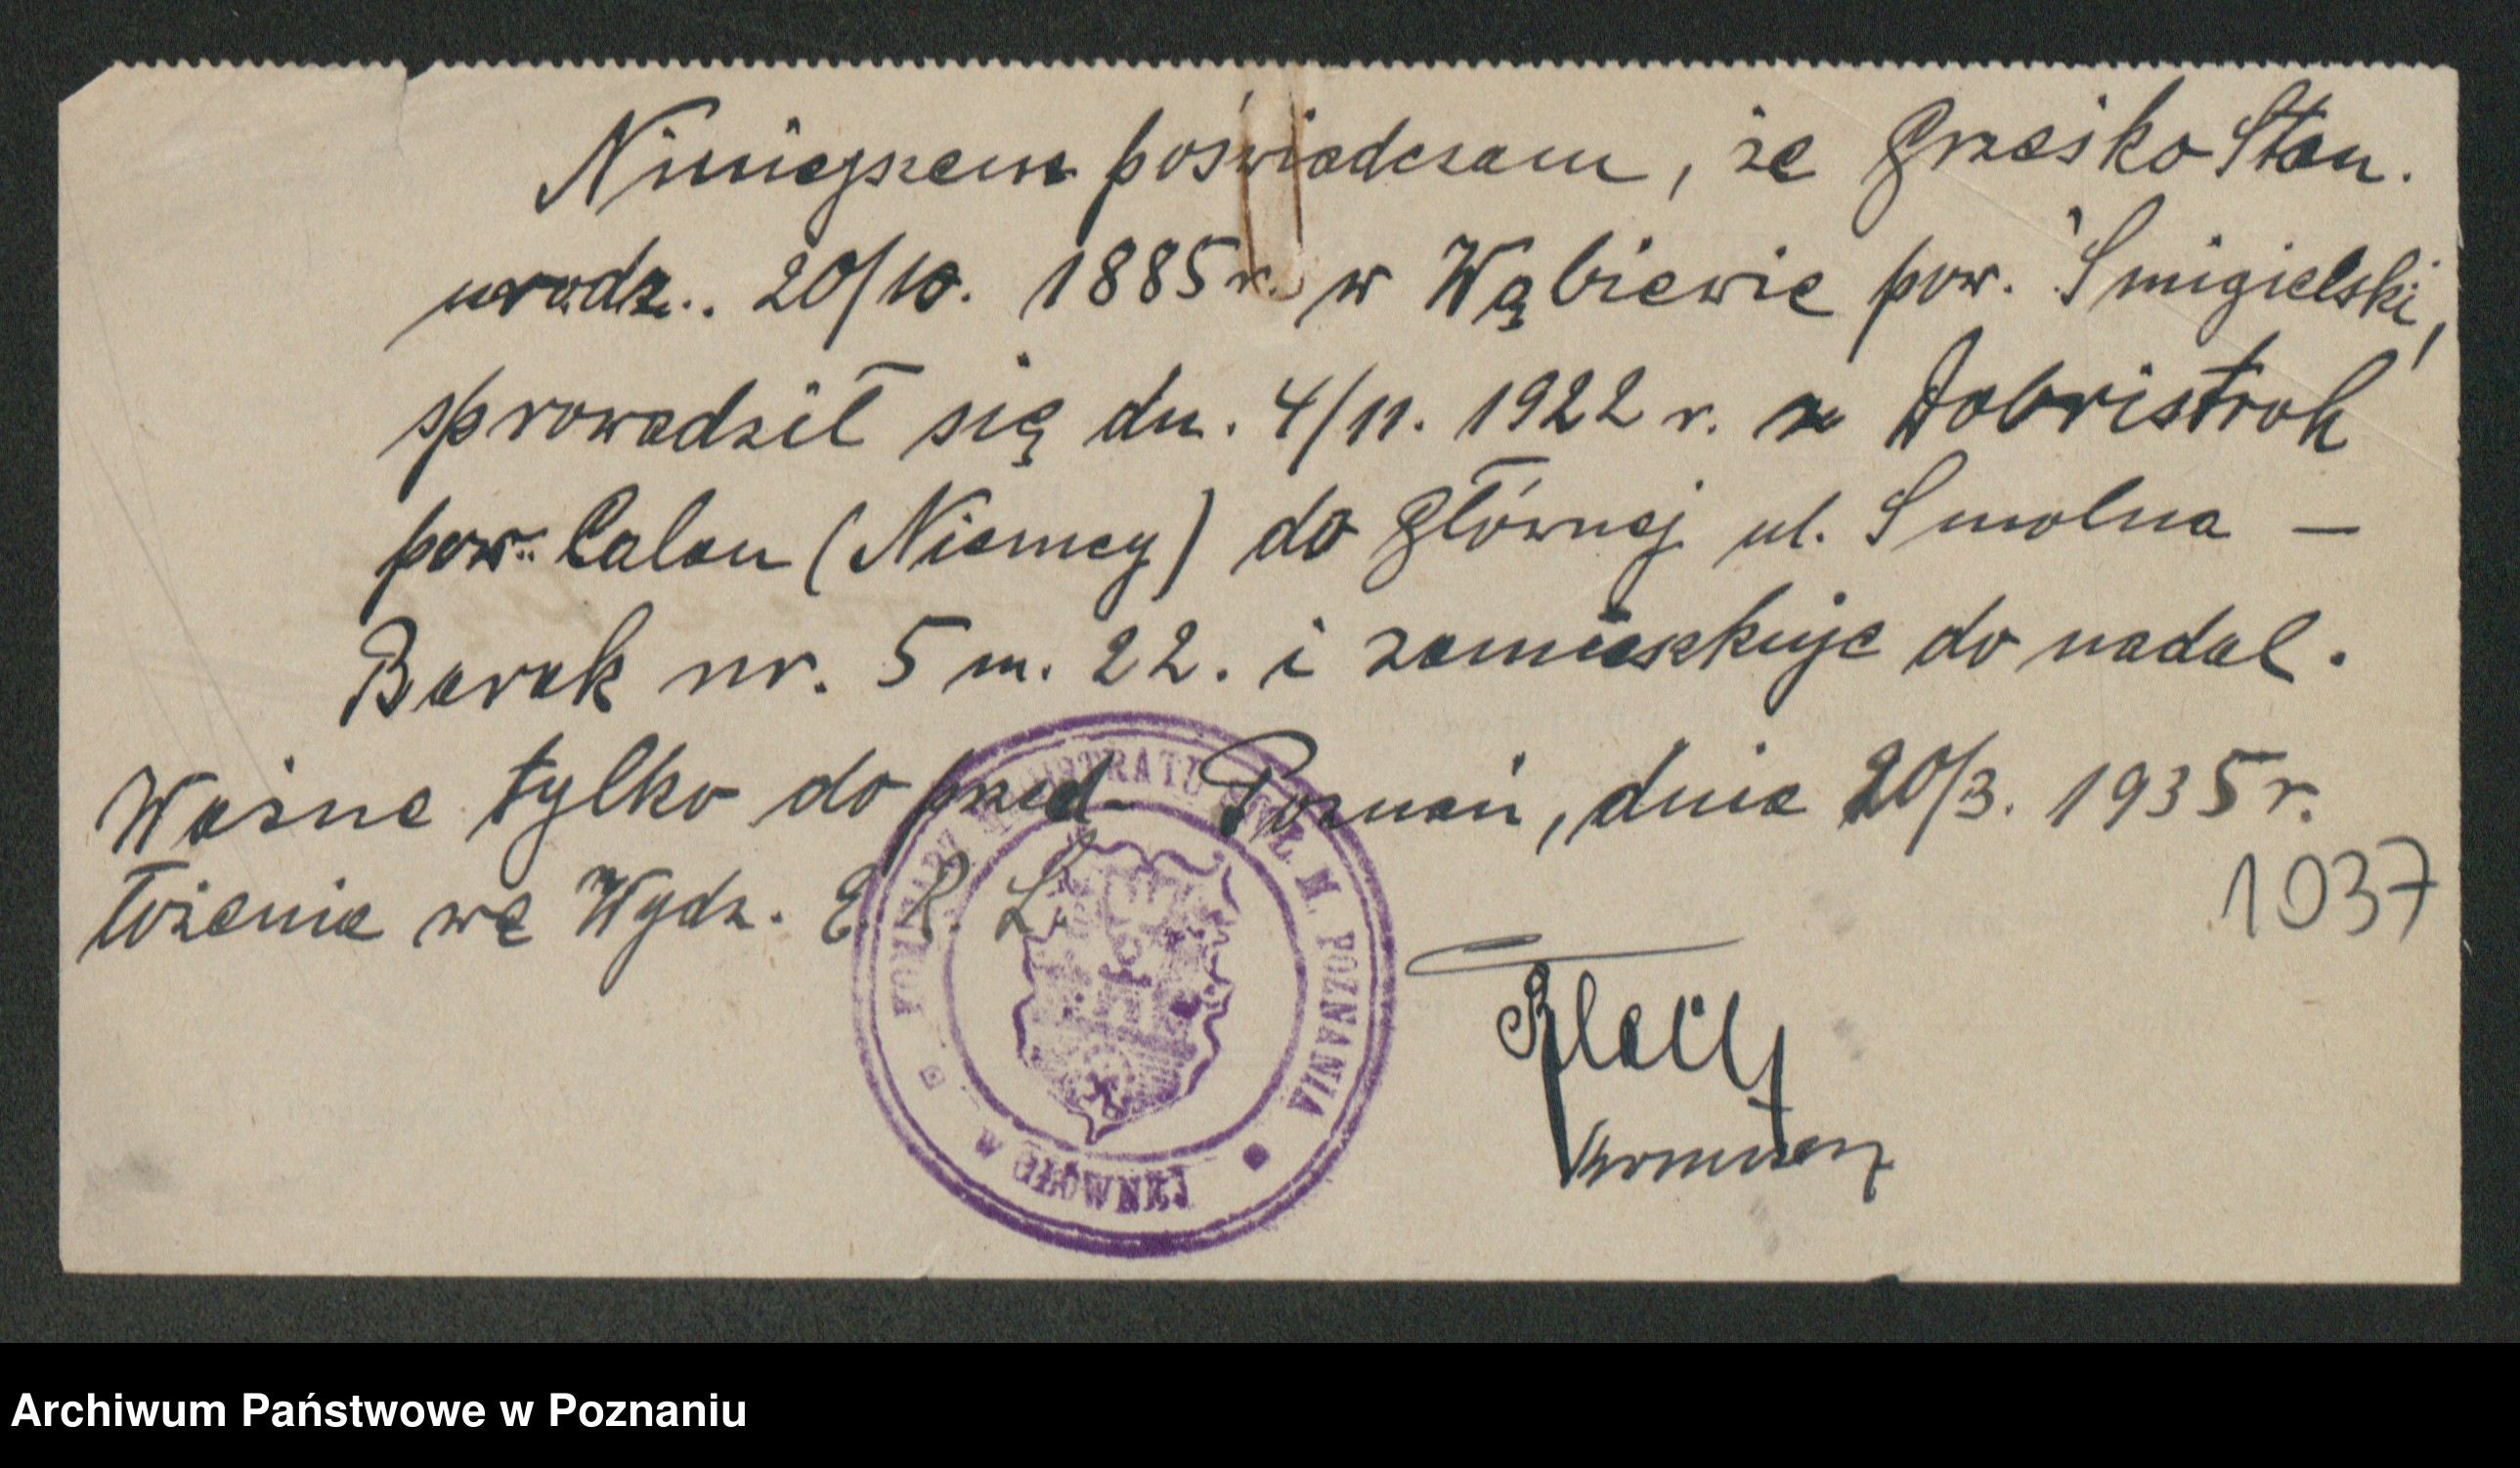 Niniejszem poświadczam, że Grześko Stan.
urodz.. 20/10. 1885 r. w Wąbiewie pow. Śmigielski,
sprowadził się dn. 4/11. 1922 r. z Dobristroh
pow. Calau (Niemcy) do Głównej ul. Smolna –
Barak nr. 5 m. 22. i zamieszkuje do nadal.
Ważne tylko do przed- Poznań, dnia 20/3. 1935 r.
łożenia we Wydz. E. R. L.
1037
MAGISTRATU STOŁ. M. POZNANIA
W GŁÓWNEJ
Archiwum Państwowe w Poznaniu